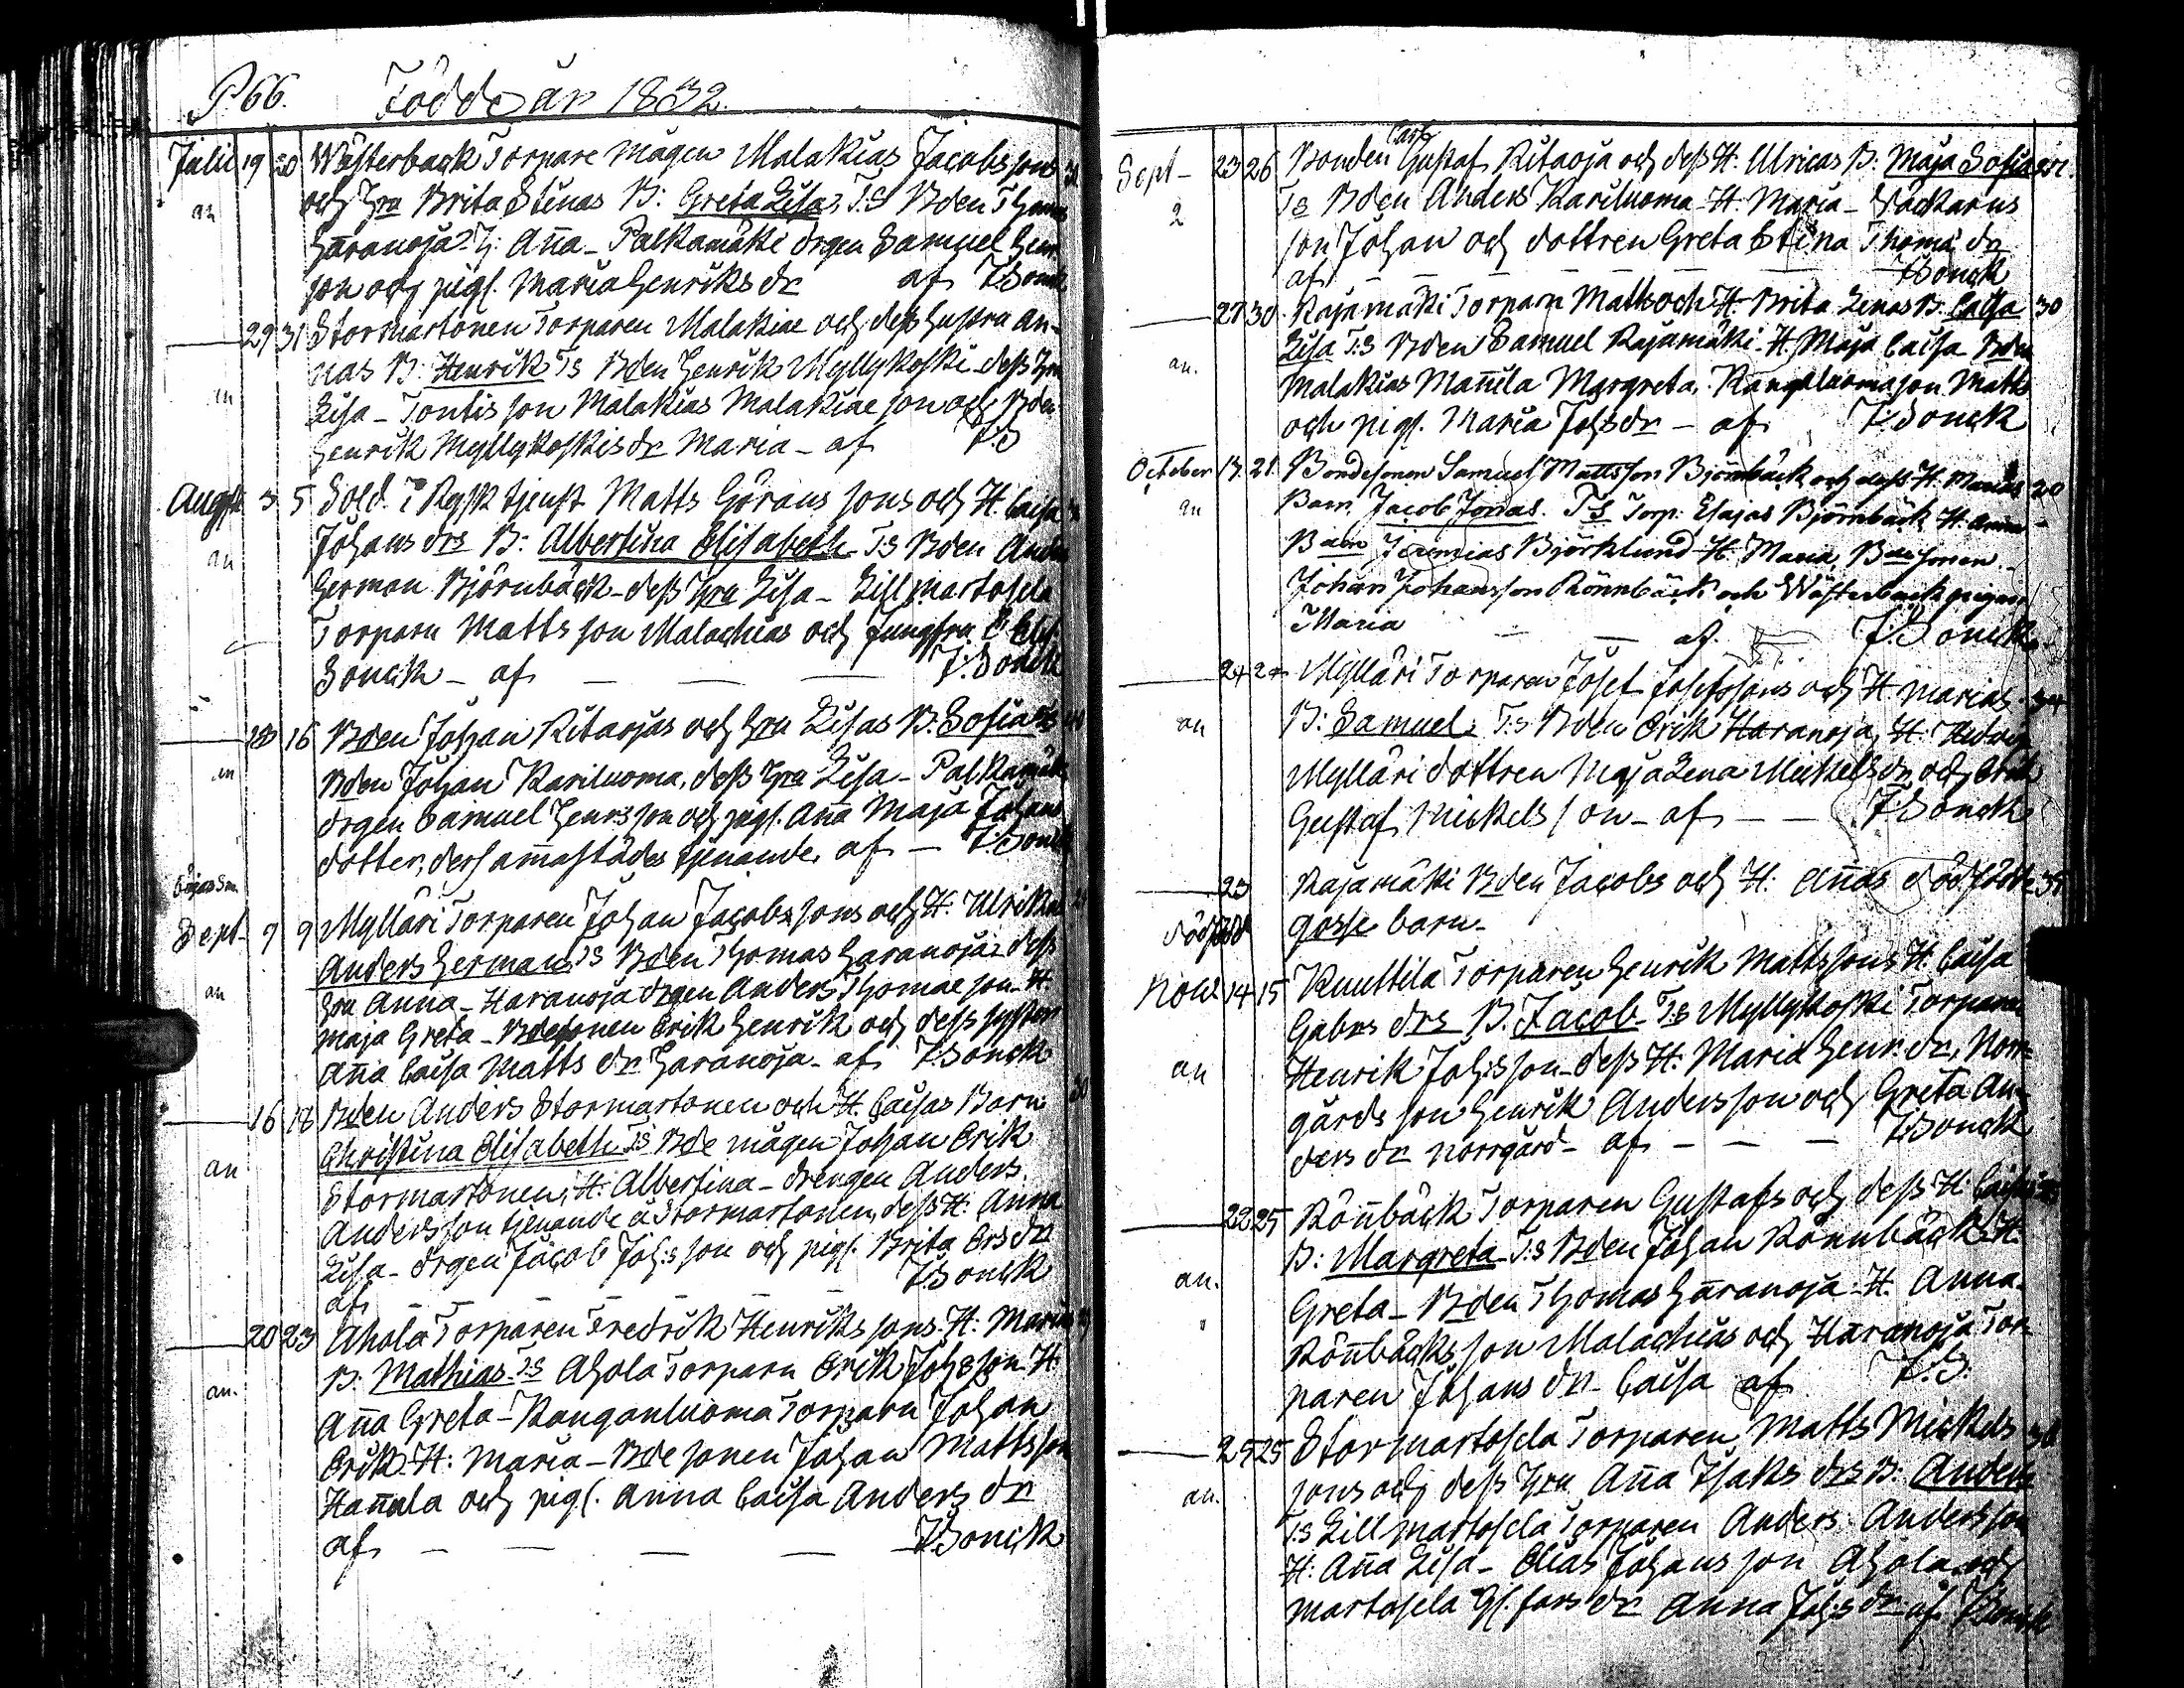 P 66. Födde år 1832.
Julii 19 20 Wästerback Torpare mågen Malakias Jacobs sons
an och Hru Brita Stinas B: Greta Lisa, T.S Bden Thomas
Haranoja H: Anna - Palkamäki drgen Samuel Henr.
son och pigl. Maria Henriks dr af J:Sonck
29 31 Stormartonen Torparen Malakiae och dess hustru An-
an nas B: Henrik Ts Bden Henrik Myllykoski dess Hru
Lisa - Tontis son Malakias Malakiae son och Bden
Henrik Myllykoskis dr Maria - af J.S
Augusti 3 5 Sold. i Rysk tjenst Matts Görans sons och H. Caisa
an Johans drs B: Albertina Elisabeth T.S Bden Anders
Herman Björnbäck - dess Hru Lisa - Lillmartosela
Torparn Matts son Malachias och Jungfru
Sonck - af J:Sonck
16 Bden Johan Kitaojas och Hru Lisas B: Sofia Ts
an Bden Johan Kariluoma, dess Hru Lisa - Palkamäki
drgen Samuel Henrs son och pigl. Anna Maja Johans
dotter, dersammastädes tjenande, af - J:Sonck
Sept. 7 9 Mylläri Torparen Johan Jacobs sons och H. Ulrikas
Anders Herman TS Bden Thomas Haranoja dess
an Hru Anna - Haranoja drgen Anders Thomae son H.
Maja Greta - Bdesonen Erik Henrik och dess syster
Anna Caisa Matts dr Haranoja - af J:Sonck
16 18 Bden Anders Stormartonen och H. Caisas Barn
Christina Elisabeth TS Bde mågen Johan Erik
an Stormartonen, H: Albertina - drengen Anders
Andersson tjenande å Stormartonen, dess H: Anna
Lisa - drgen Jacob Joh:s son och pigl. Brita Ers dr
af J:Sonck
20 23 Ahola Torparen Fredrik Henriks sons H: Marias
B: Mathias T.S Ahola Torparn Erik Joh:s son H:
an. Anna Greta - Kanganluoma Torparn Johan
Erik H: Maria - Bde sonen Johan Mattsson
Hannula och pigl. Anna Caisa Anders dr
af J:Sonck
Sept - 23 26 Bonden Carl Gustaf Kitaoja och dess H: Ulricas B: Maja Sofia
2 Ts Bden Anders Kariluoma H: Maria - Däckarns
son Johan och dottren Greta Stina Thomæ dr
af J:Sonck
27 30 Rajamäki Torparn Matts och H Brita Lenas B: Caisa 30
Lisa T:S Bden Samuel Rajamäki H. Maja Caisa Bden
an. Malakias Mannila Margreta, Kangaluoma son Matts
och pigl. Maria Joh:s dr - af J:Sonck
October 17. 21. Bondesonen Samuel Mattsson Björnbäck och dess H. Marias 20
an Barn Jacob Jonas. TS Torp: Elajas Björnbäck H. Anna
Bden Jeremias Björklund H: Maria, Bdesonen
Johan Johansson Rönnbäck och Wästerback pigan
Maria af J:Sonck
24 27 Mylläri Torparen Josef Josefssons och H Marias 34
an B: Samuel T:s Bden Erik Haranoja, H: Hedvig
Mylläri dottren Maja Lena Mickels dr och Erik
Gustaf Mickels son - af J:Sonck
23 Rajamäki Bden Jacobs och H: Annas dödfödde
dödfödd gosse barn -
Nov. 14 15 Knuttila Torparen Henrik Mattssons H. Caisa
Gabrs drs B. Jacob T:s Myllykoski Torparen
an Henrik Joh:s son - dess H: Maria Henr. dr, Norr-
gårds son Henrik Andersson och Greta An-
ders dr norrgård - af J:Sonck
22 25 Rönnbäck Torparen Gustafs och dess H: Caisas
B: Margreta T:s Bden Johan Rönnbäck H:
an. Greta - Bden Thomas Haranoja H. Anna.
Rönnbäcks son Malachias och Haranoja Tor-
paren Johans dr Caisa af J:S.
25 25 Stormartosela Torparen Matts Mickels
an. sons och dess Hru Anna Isaks drs B: Anders
T.s Lillmartosela Torparen Anders Andersson
H: Anna Lisa - Elias Johans son Ahola och
martosela Gl. fars dr Anna Joh:s dr af J:Sonck